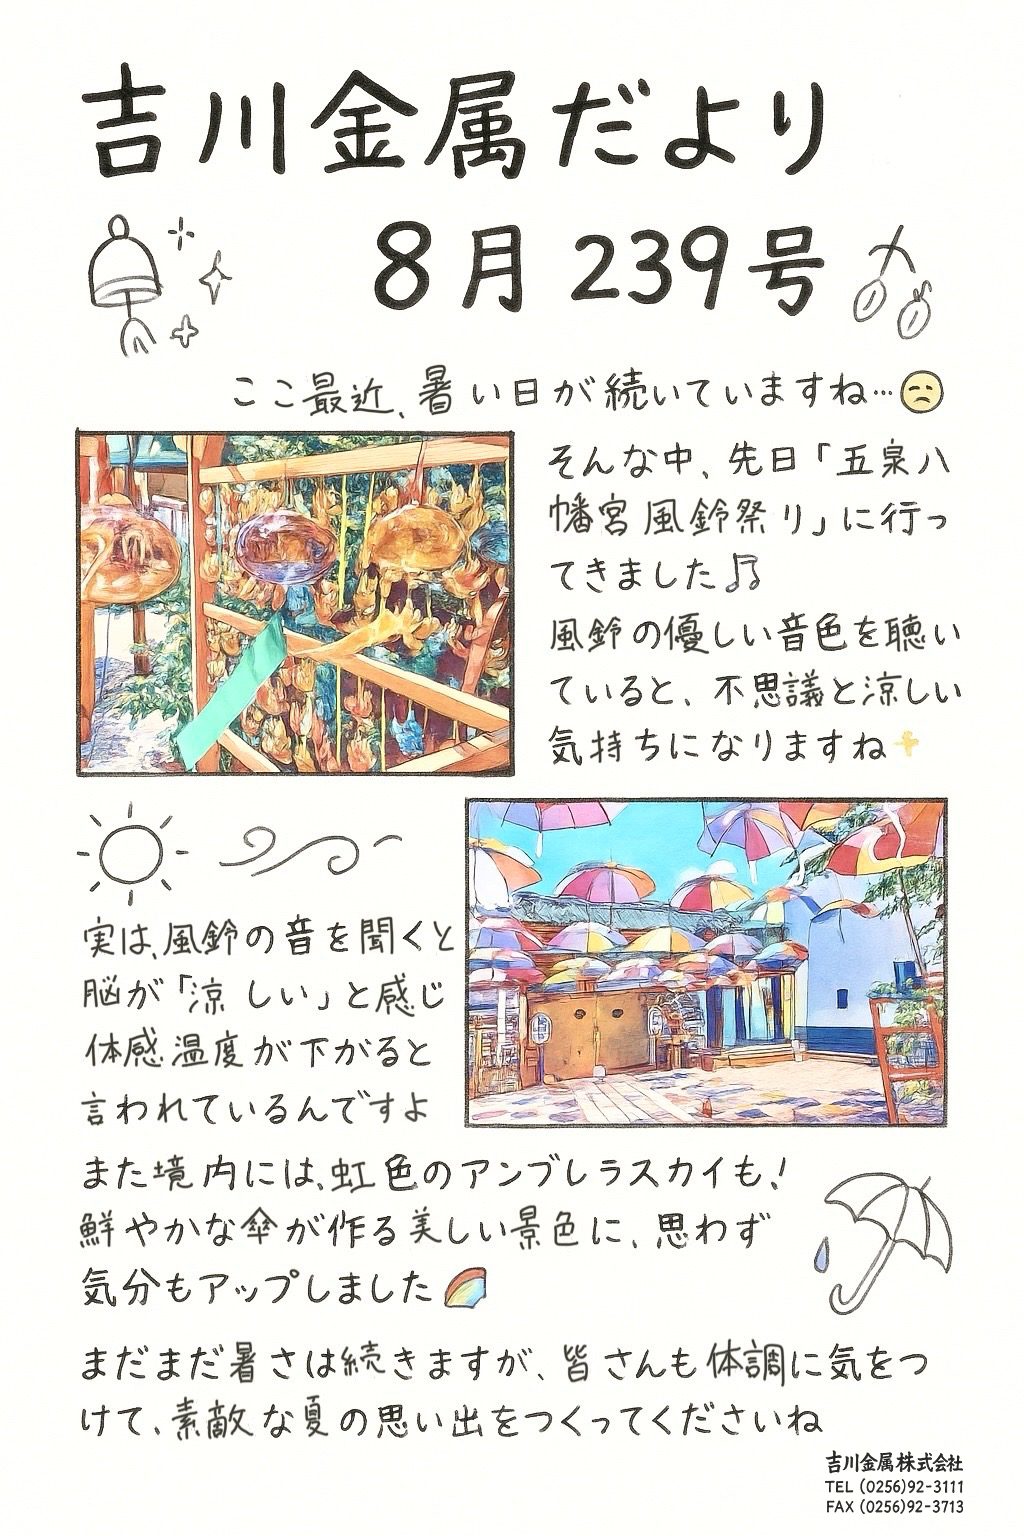 吉川金属だより
8月 239号
ここ最近、暑い日が続いていますね…
そんな中、先日「五泉八
幡宮 風鈴祭り」に行っ
てきました♫
風鈴の優しい音色を聴い
ていると、不思議と涼しい
気持ちになりますね
実は、風鈴の音を聞くと
脳が「涼しい」と感じ
体感温度が下がると
言われているんですよ
また境内には、虹色のアンブレラスカイも!
鮮やかな傘が作る美しい景色に、思わず
気分もアップしました
まだまだ暑さは続きますが、皆さんも体調に気をつ
けて、素敵な夏の思い出をつくってくださいね
吉川金属株式会社
TEL (0256)92-3111
FAX (0256)92-3713